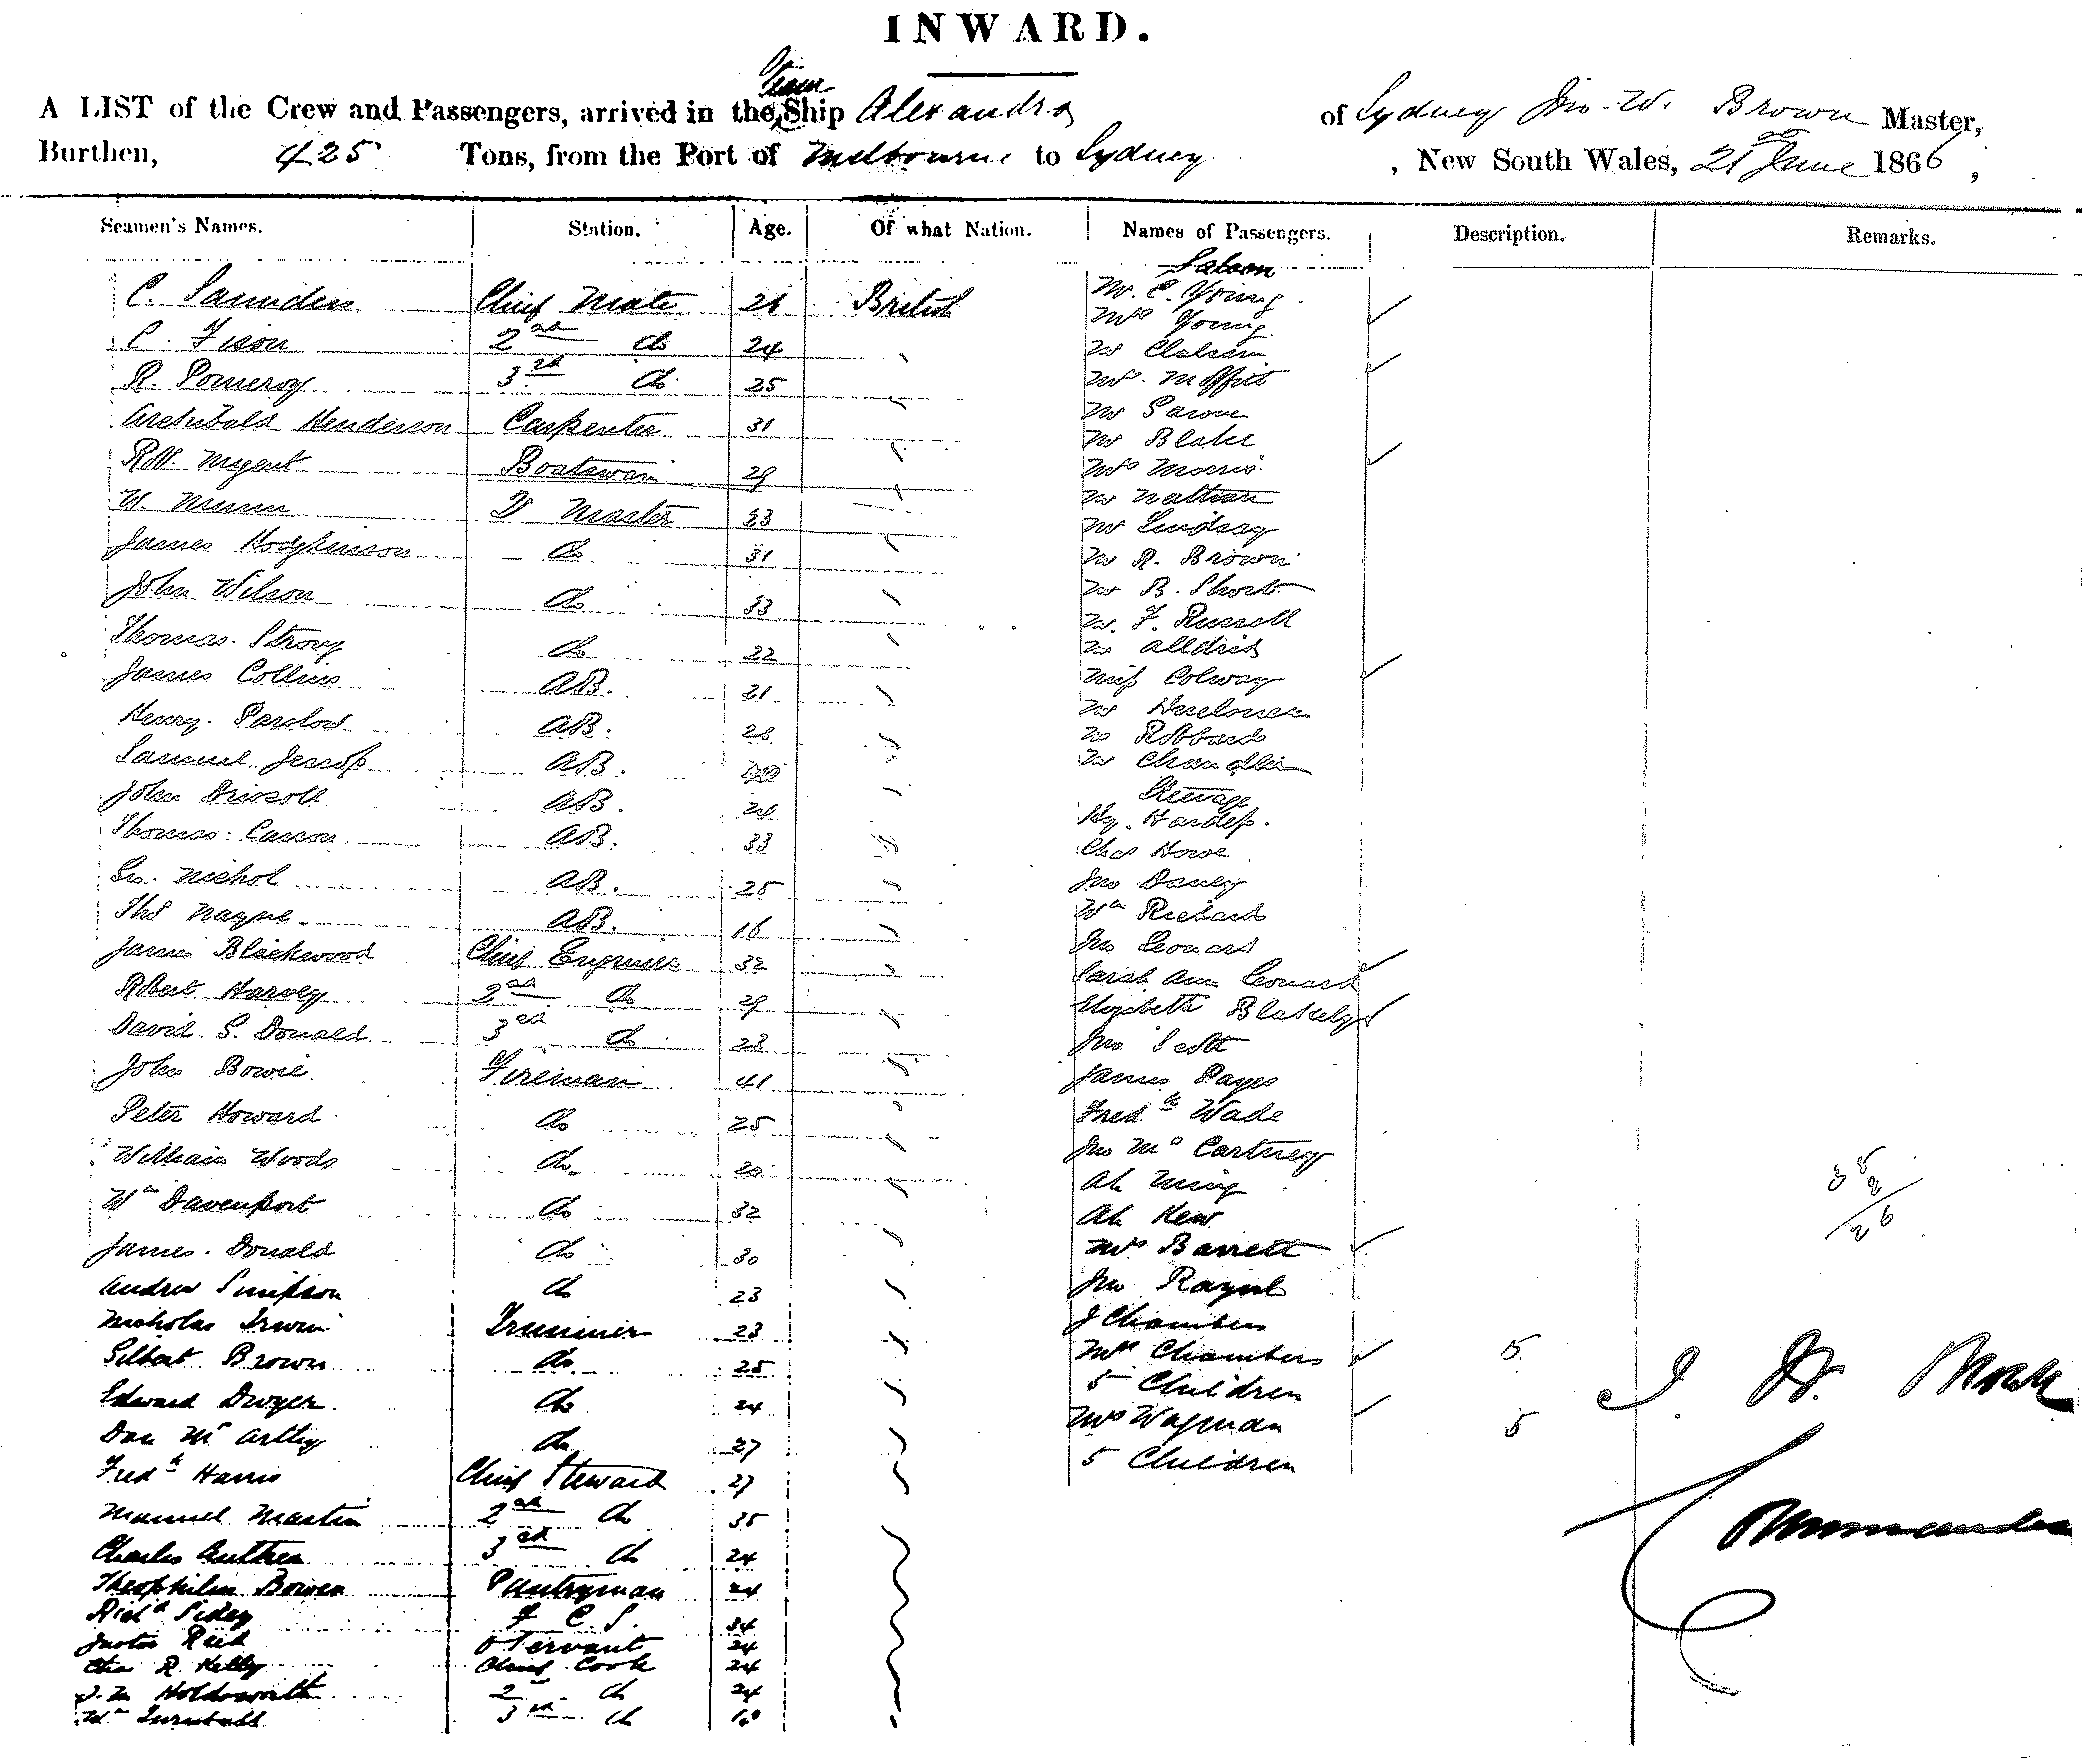 INWARD.
A LIST of the Crew and Passengers, arrived in the Steam Ship Alexandra of Sydney Jno. W. Brown Master,
Burthen, 425 Tons, from the Port of Melbourne to Sydney, New South Wales, 21 June 1866,
Seamen's Names. Station. Age. Of what Nation. Names of Passengers. Description. Remarks.
Saloon
C. Saunders Chief Mate 26 British Mr. C. Young
Mrs Young
C. Fison 2nd do 24 Mr
R. Pomeroy 3rd do 25 Mrs. Moffitt
Archibald Henderson Carpenter 31 Mr
Mr Blake
Robt. Nugent Boatswain 29 Mrs Morris
W. Munn Q Master 33 Mr Nathan
Mr Lindsay
James Hodgkinson do 31 Mr R. Brown
John Wilson do 33 Mr B. Short
Mr. F. Russell
Thomas Strong do 22 Mr Alldris
James Collins AB. 21 Miss Colway
Mr
Henry Parslow AB. 28 Mr Robbards
Samuel Jessop AB. Mr Chandler
Steerage
John Driscoll AB. 24 Hy. Hardess.
Thomas Carson AB. 33 Chas Howe
Geo. Nichol AB. 25 Jno Daney
Thos Nayne AB. 16 Wm Richards
James Blackwood Chief Engineer 32 Jno Leonard
Sarah Ann Leonard
Robert Harvey 2nd do 29 Elizabeth Blakely
David S. Donald 3rd do 28 Jno Scott
John Bowie Fireman 41 James Pages
Peter Howard do 25 Fredk Wade
Jno McCartney
William Woods do. 20 Ah Ming
Wm Davenport do 32 Ah Kew
James Donald do 30 Mrs Barrett
Andrew Simpson do 23 Jno
Nicholas Irwin Trimmer 23 J Chambers
Gilbert Brown do. 25 Mrs Chambers 5
5 Children
Edward Dwyer do 24 Mrs Wayman 5
Dan McArthy do 27 5 Children
Fredk Harris Chief Steward 27
Manuel Martin 2nd do 35
Charles 3rd do 24
Theophilus Bowen Pantryman 24
Richd Sidey F C S. 34
Justus Reid O Servant 24
Chas R. Kelly Chief Cook 24
J. M Holdsworth 2 do 24
Wm Turnbull 3rd do
J. W. Brown
Commander